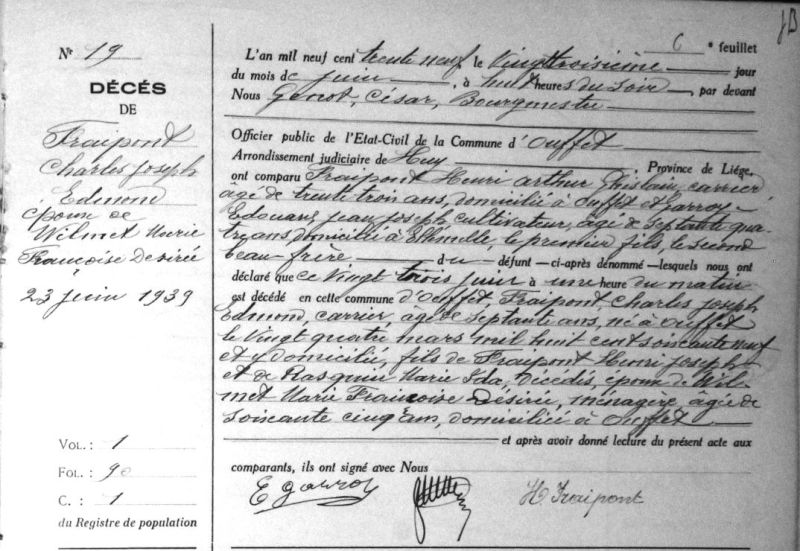 JB
N° 19
DÉCÉS
DE
Fraipont
Charles Joseph
Edmond
époux de
Wilmet Marie
Françoise Desirée
23 juin 1939
VOL.: 1
FOL.: 90
C. : 1
du Registre de population
6 e feuillet
L'an mil neuf cent trente neuf le vingttroisième jour
du mois de juin, à huit heures du soir, par devant
Nous Genot, César, Bourgmestre
Officier public de l'Etat-Civil de la Commune d'Ouffet
Arrondissement judiciaire de Huy Province de Liége,
ont comparu Fraipont Henri Arthur Ghislain, carrier
âgé de trente trois ans, domicilié à Ouffet et
Edouard Jean Joseph cultivateur, âgé de septante qua-
tre ans domicilié à Ellemelle, le premier fils, le second
beau frère du défunt —ci-après dénommé —lesquels nous ont
déclaré que ce vingt trois juin à une heure du matin
est décédé en cette commune d'Ouffet Fraipont, Charles Joseph
Edmond, carrier, âgé de septante ans, né à Ouffet
le vingt quatre mars mil huit cent soixante neuf
et y domicilié, fils de Fraipont Henri Joseph
et de Rasquin Marie Ida, décédés, époux de Wil-
met Marie Françoise Désirée, ménagère, âgée de
soixante cinq ans, domiciliée à Ouffet
et après avoir donné lecture du présent acte aux
comparants, ils ont signé avec Nous
H. Fraipont